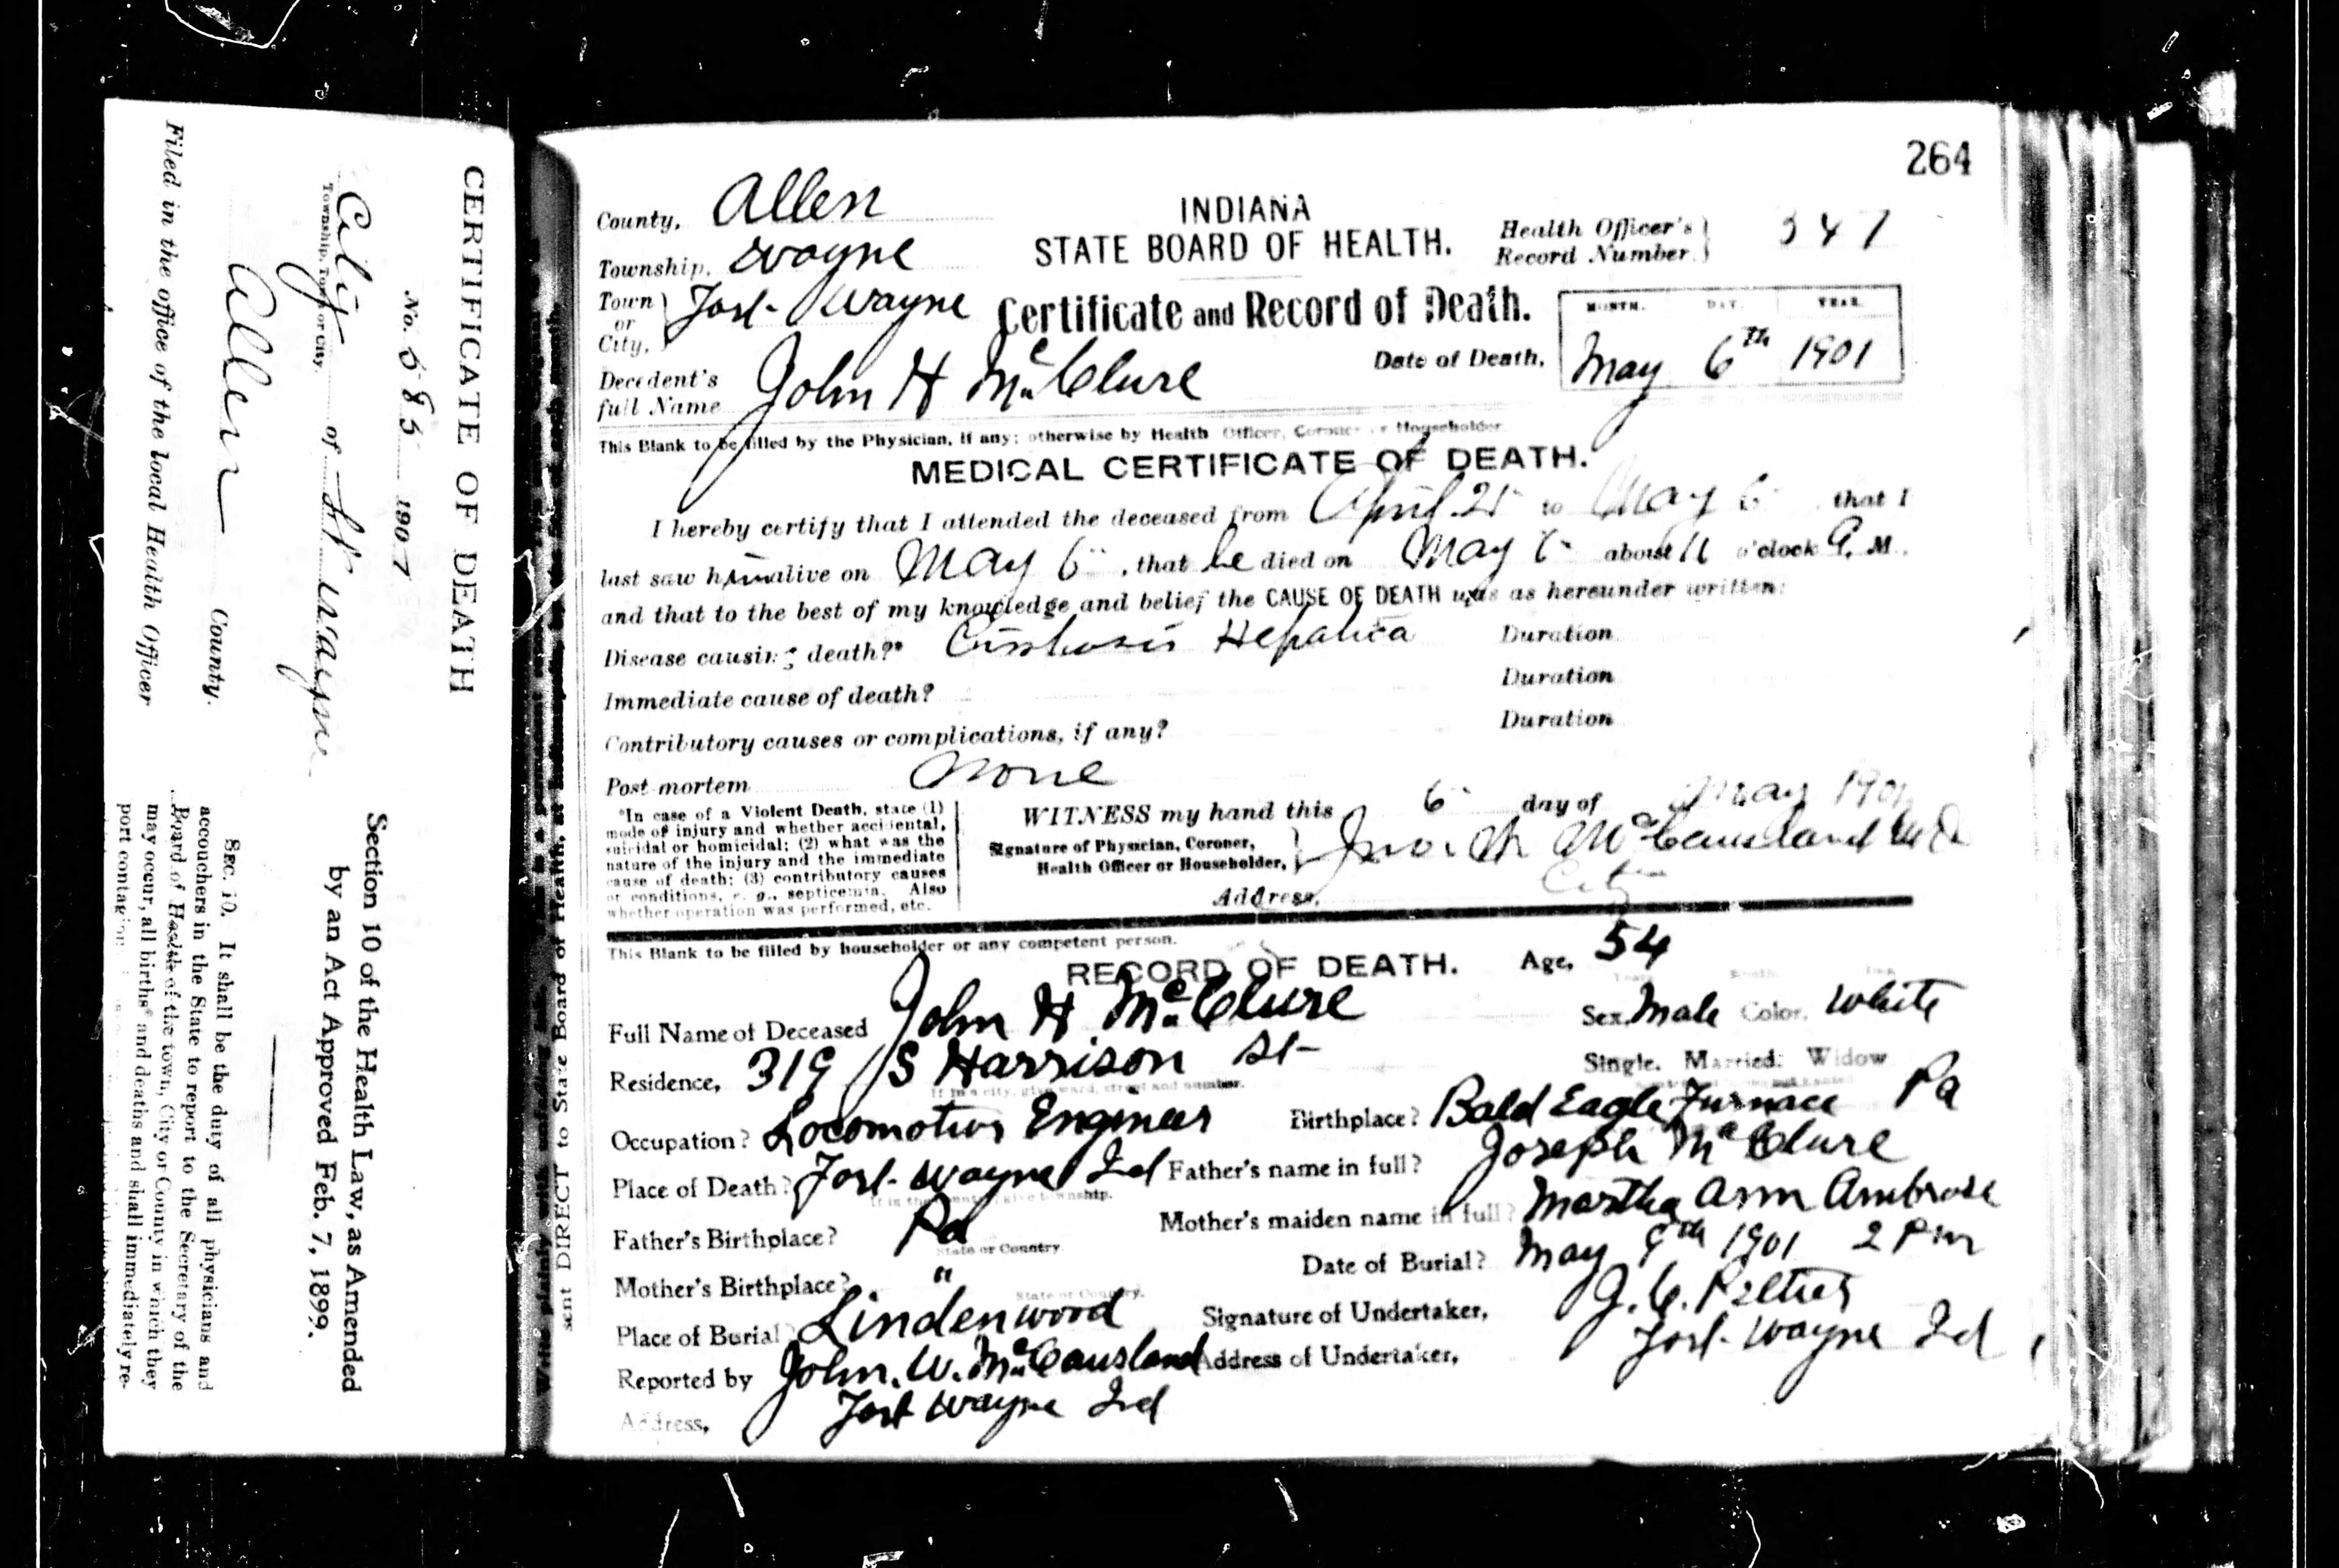 CERTIFICATE OF DEATH
No. 585 1907
City of Ft Wayne
Township, Town or City.
Allen County.
Filed in the office of the local Health Officer
Section 10 of the Health Law, as Amended
by an Act Approved Feb. 7, 1899.
SEC. 10. It shall be the duty of all physicians and
accoucheurs in the State to report to the Secretary of the
Board of Health of the town, City or County in which they
may occur, all births and deaths and shall immediately re-
port contagious
sent DIRECT to State Board of Health,
264
County, Allen
INDIANA
STATE BOARD OF HEALTH.
Health Officer's
Record Number } 347
Township, Wayne
Town or City, } Fort Wayne
Certificate and Record of Death.
MONTH. DAY. YEAR.
Date of Death, May 6th 1901
Decedent's
full Name John H McClure
This Blank to be filled by the Physician, if any; otherwise by Health Officer, Coroner or Householder.
MEDICAL CERTIFICATE OF DEATH.
I hereby certify that I attended the deceased from April 25 to May 6 that I
last saw him alive on May 6, that he died on May 6 about 11 o'clock A. M.
and that to the best of my knowledge and belief the CAUSE OF DEATH was as hereunder written:
Disease causing death?* Cirrhosis Hepatica Duration
Immediate cause of death? Duration
Contributory causes or complications, if any? Duration
Post mortem None
*In case of a Violent Death, state (1)
mode of injury and whether accidental,
suicidal or homicidal; (2) what was the
nature of the injury and the immediate
cause of death; (3) contributory causes
or conditions, e. g., septicemia. Also
whether operation was performed, etc.
WITNESS my hand this 6 day of May 1901
Signature of Physician, Coroner,
Health Officer or Householder, } McCausland M D
Address, City
This Blank to be filled by householder or any competent person.
RECORD OF DEATH. Age, 54
Full Name of Deceased John H McClure Sex, Male Color, White
Residence, 319 S Harrison St Single. Married. Widow
If in a city, give ward, street and number.
Occupation? Locomotive Engineer Birthplace? Bald Eagle Furnace Pa
Place of Death? Fort Wayne Ind Father's name in full? Joseph McClure
If in the country, give township.
Father's Birthplace? Pa Mother's maiden name in full? Martha Ann Ambrose
State or Country
Mother's Birthplace? " Date of Burial? May 9th 1901 2 Pm
State or Country.
Place of Burial? Lindenwood Signature of Undertaker, J. C. Peltier
Reported by John. W. McCausland Address of Undertaker, Fort Wayne Ind
Address, Fort Wayne Ind